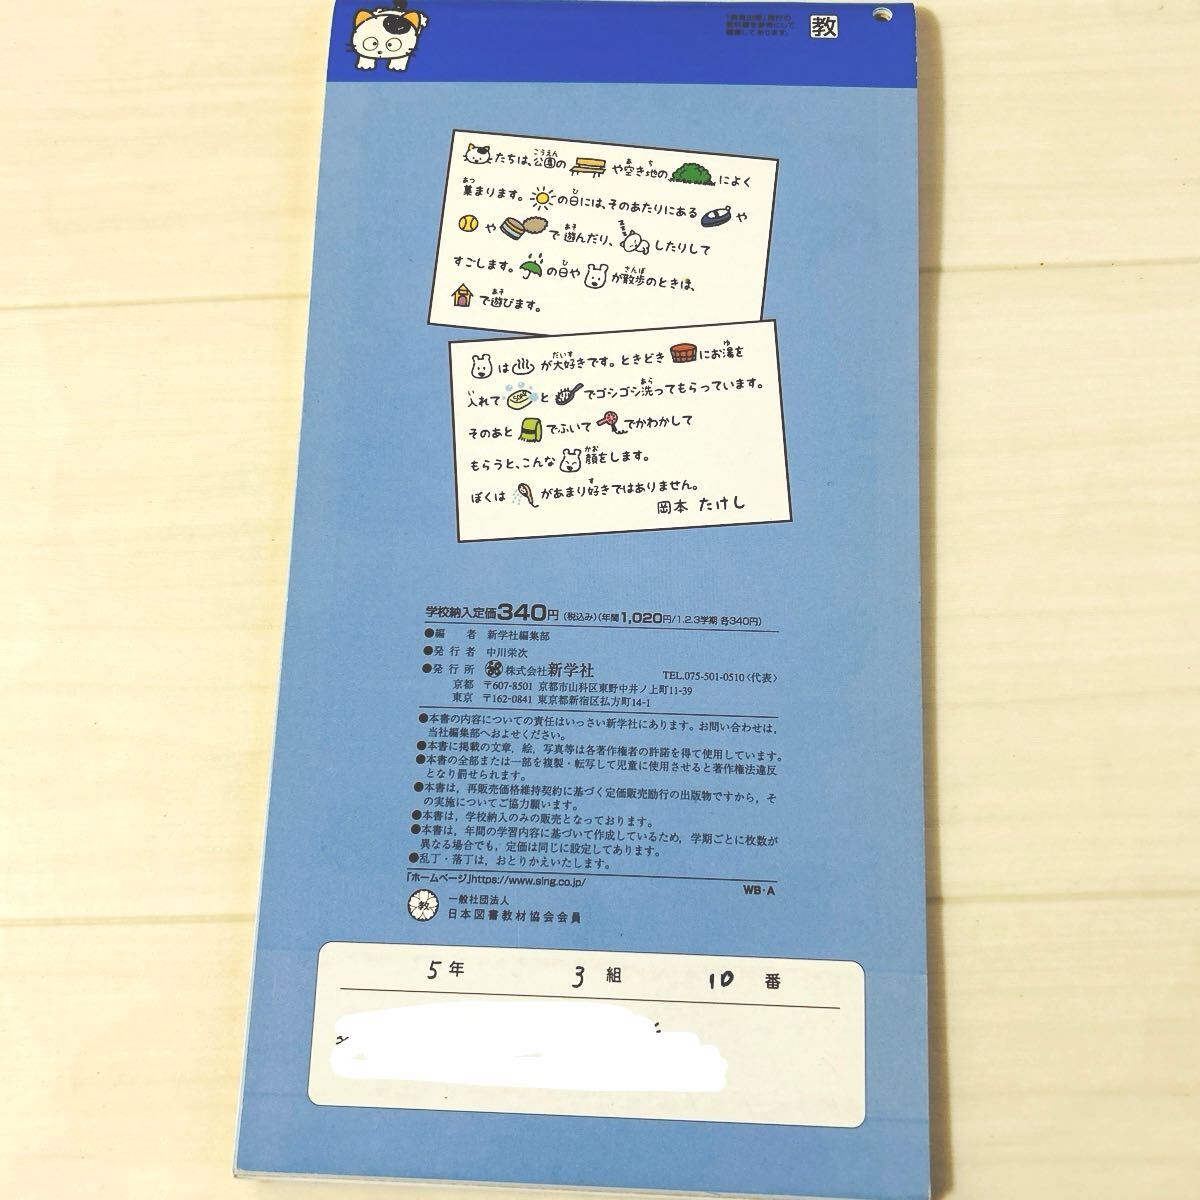 「教育出版」発行の
教科書を参考にして
編集してあります。
教
たちは、公園の や空き地の によく
集まります。 の日には、そのあたりにある や
や で遊んだり、 したりして
すごします。 の日や が散歩のときは、
で遊びます。
は が大好きです。ときどき にお湯を
入れて SOAP と でゴシゴシ洗ってもらっています。
そのあと でふいて でかわかして
もらうと、こんな 顔をします。
ぼくは があまり好きではありません。
岡本 たけし
学校納入定価340円(税込み)(年間1,020円/1.2.3学期 各340円)
●編 者 新学社編集部
●発行者 中川栄次
●発行所 株式会社新学社 TEL.075-501-0510〈代表〉
京都 〒607-8501 京都市山科区東野中井ノ上町11-39
東京 〒162-0841 東京都新宿区払方町14-1
●本書の内容についての責任はいっさい新学社にあります。お問い合わせは,
当社編集部へおよせください。
●本書に掲載の文章,絵,写真等は各著作権者の許諾を得て使用しています。
●本書の全部または一部を複製・転写して児童に使用させると著作権法違反
となり罰せられます。
●本書は,再販売価格維持契約に基づく定価販売励行の出版物ですから,そ
の実施についてご協力願います。
●本書は,学校納入のみの販売となっております。
●本書は,年間の学習内容に基づいて作成しているため,学期ごとに枚数が
異なる場合でも,定価は同じに設定してあります。
●乱丁・落丁は,おとりかえいたします。
「ホームページ」https://www.sing.co.jp/ WB・A
教
一般社団法人
日本図書教材協会会員
5年 3組 10番